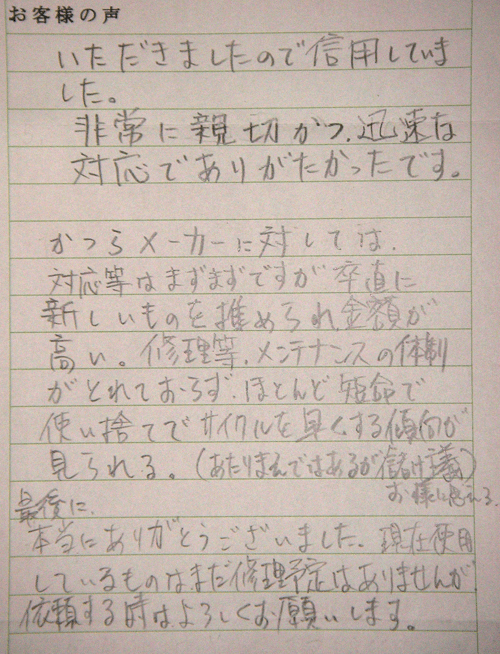 お客様の声
いただきましたので信用していま
した。
非常に親切かつ、迅速な
対応でありがたかったです。
かつらメーカーに対しては、
対応等はまずまずですが卒直に
新しいものを推められ、金額が
高い。修理等、メンテナンスの体制
がとれておらず、ほとんど短命で
使い捨てでサイクルを早くする傾向が
見られる。(あたりまえではあるが儲け主義)
お様に思える。
最後に、
本当にありがとうございました。現在使用
しているものはまだ修理予定はありませんが
依頼する時はよろしくお願いします。